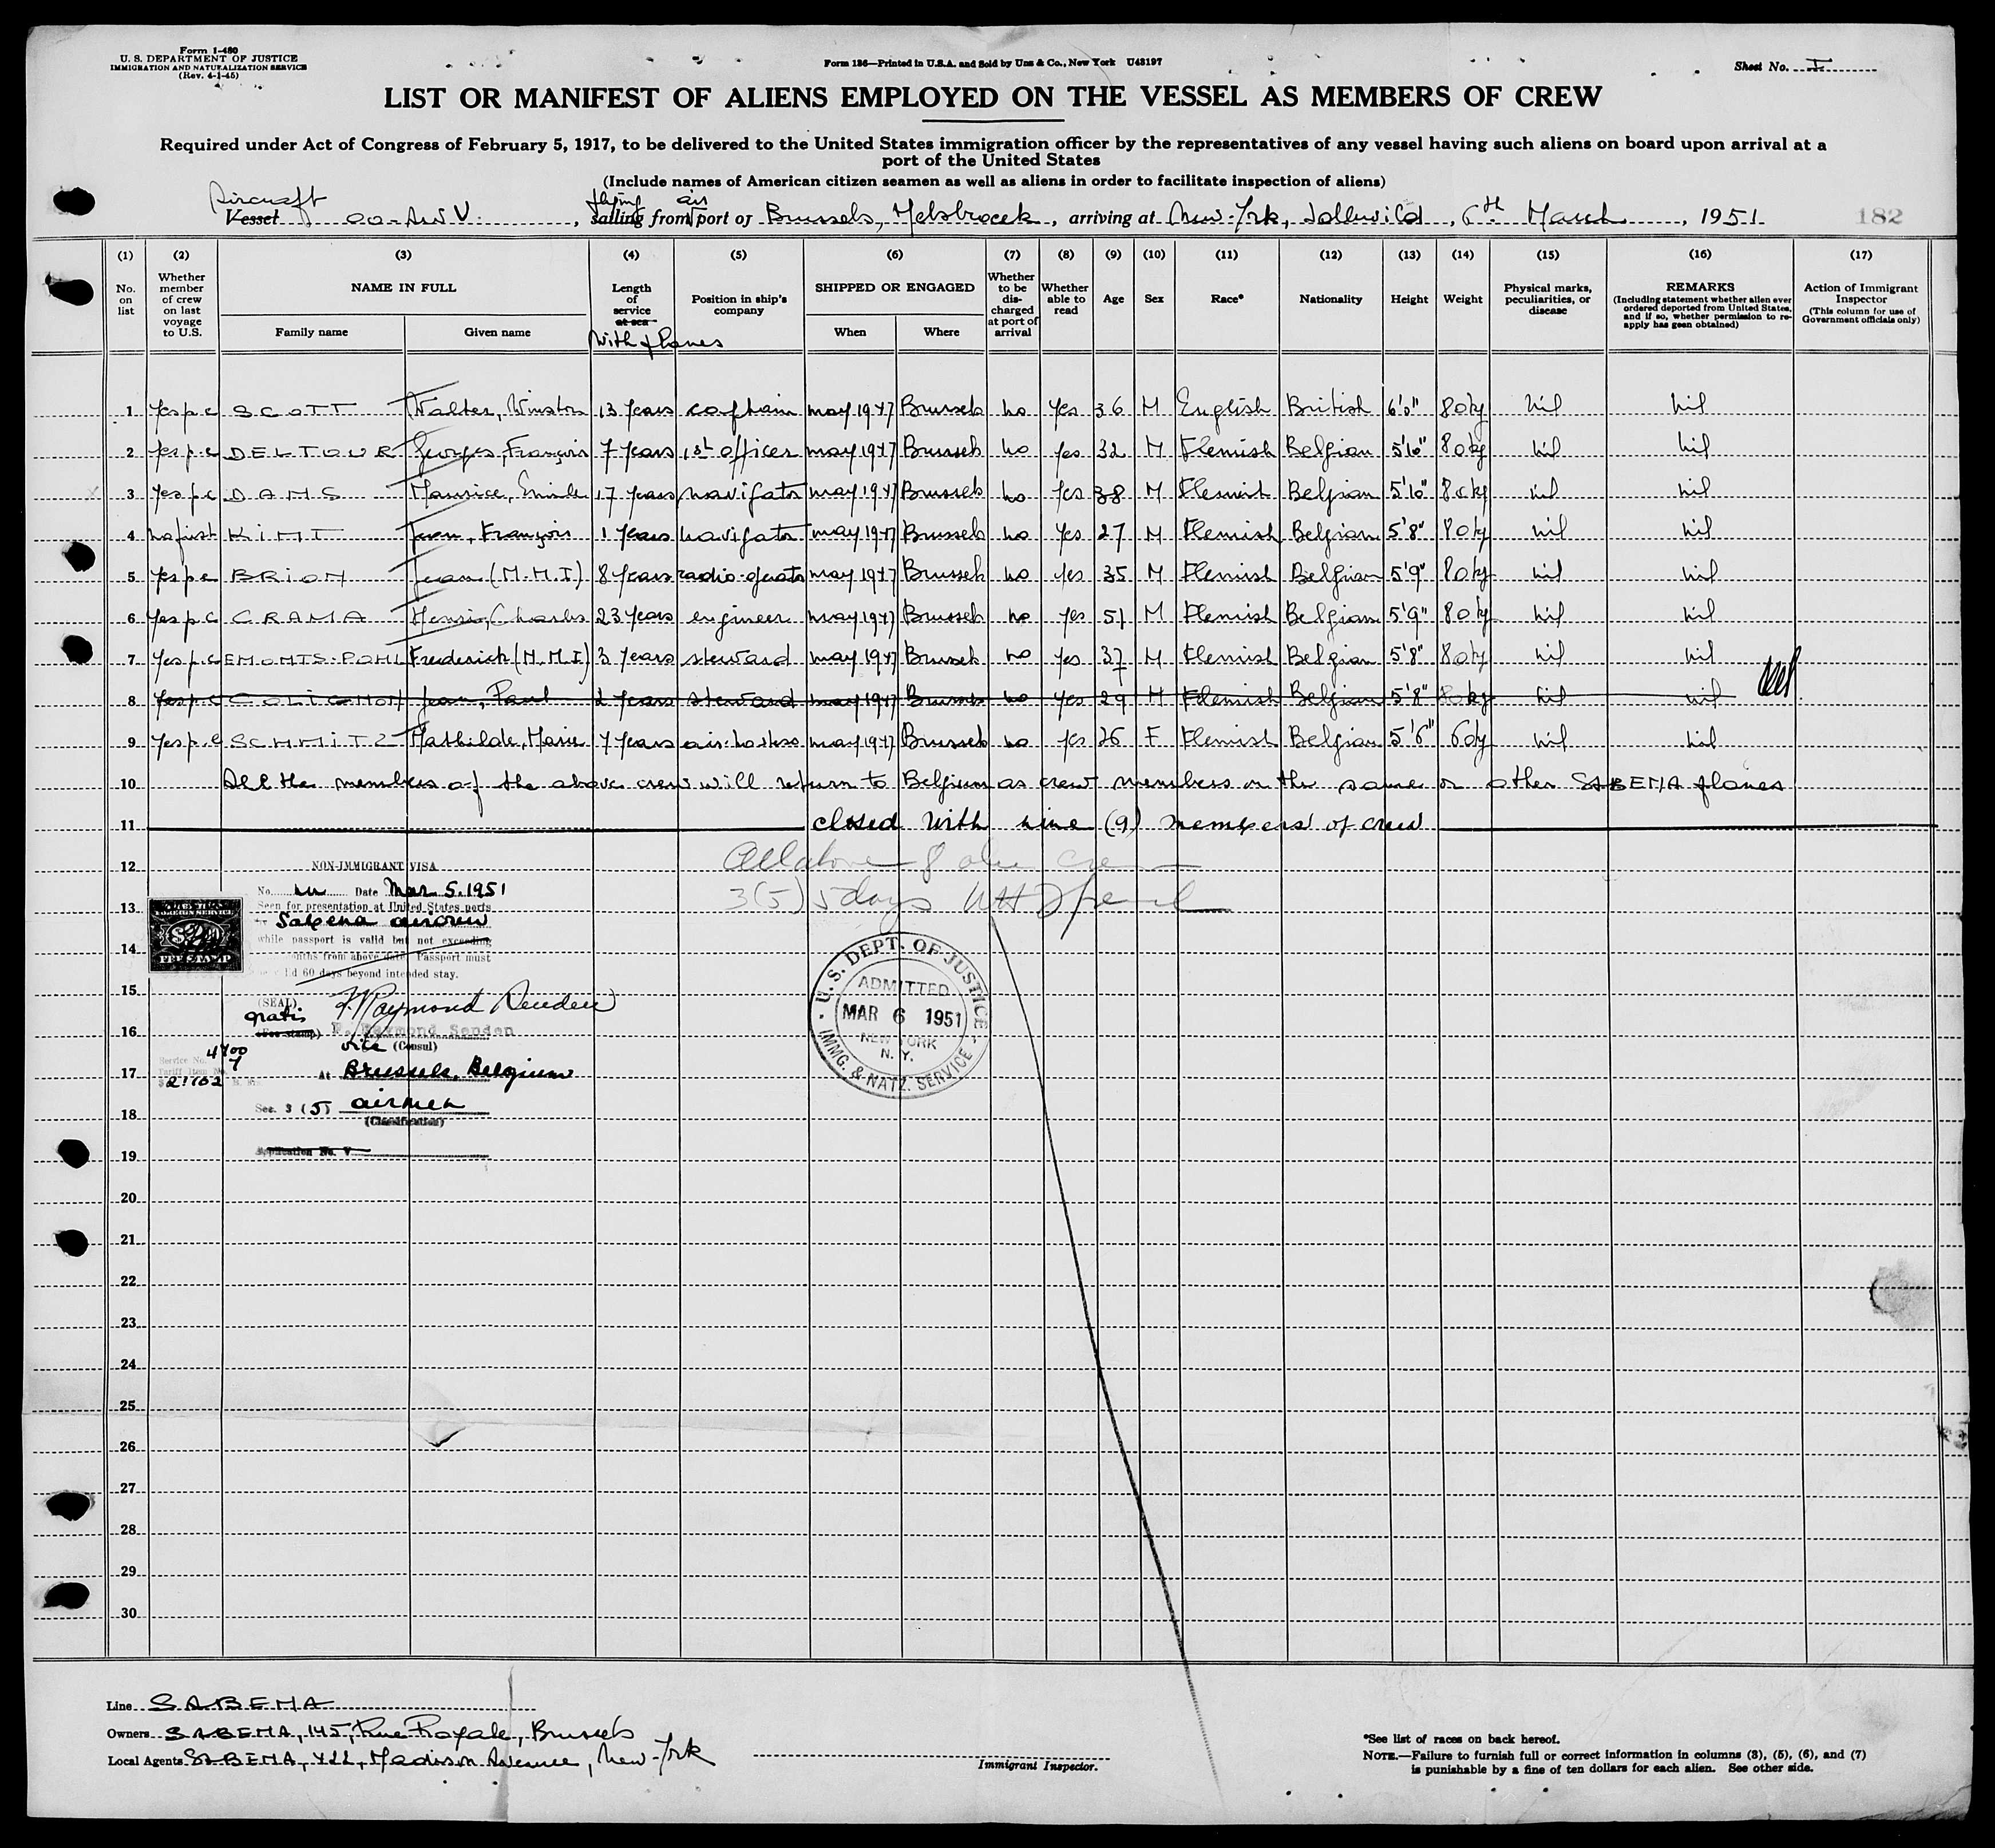 Form I-480
U. S. DEPARTMENT OF JUSTICE
IMMIGRATION AND NATURALIZATION SERVICE
(Rev. 4-1-45)
Form 136—Printed in U.S.A. and Sold by Unz & Co., New York U43197
Sheet No. I
LIST OR MANIFEST OF ALIENS EMPLOYED ON THE VESSEL AS MEMBERS OF CREW
Required under Act of Congress of February 5, 1917, to be delivered to the United States immigration officer by the representatives of any vessel having such aliens on board upon arrival at a
port of the United States
(Include names of American citizen seamen as well as aliens in order to facilitate inspection of aliens)
Aircraft flying air
Vessel OO-AWV, sailing from port of Brussels, Melsbroek, arriving at New-York, Idlewild, 6th March, 1951 182
(1) (2) (3) (4) (5) (6) (7) (8) (9) (10) (11) (12) (13) (14) (15) (16) (17)
No. on list
Whether member of crew on last voyage to U.S.
NAME IN FULL
Family name Given name
Length of service at sea
With planes
Position in ship's company
SHIPPED OR ENGAGED
When Where
Whether to be discharged at port of arrival
Whether able to read
Age Sex Race* Nationality Height Weight
Physical marks, peculiarities, or disease
REMARKS
(Including statement whether alien ever ordered deported from United States, and if so, whether permission to reapply has been obtained)
Action of Immigrant Inspector
(This column for use of Government officials only)
1 Yes p.c SCOTT Walter, Winston 13 Years captain may 1947 Brussels no Yes 36 M English British 6'0" 80kg nil nil
2 Yes p.c DELTOUR Georges, François 7 Years 1st officer may 1947 Brussels no Yes 32 M Flemish Belgian 5'10" 80kg nil nil
3 Yes p.c DAMS Maurice, Emile 17 Years navigator may 1947 Brussels no Yes 38 M Flemish Belgian 5'10" 80kg nil nil
4 no first KIMT Jean, François 1 Years navigator may 1947 Brussels no Yes 27 M Flemish Belgian 5'8" 80kg nil nil
5 Yes p.c BRION Jean (N.M.I) 8 Years radio-operator may 1947 Brussels no Yes 35 M Flemish Belgian 5'9" 80kg nil nil
6 Yes p.c CRAMA Henri, Charles 23 Years engineer may 1947 Brussels no Yes 51 M Flemish Belgian 5'9" 80kg nil nil
7 Yes p.c EMONTS-POHL Frederich (N.M.I) 3 Years steward may 1947 Brussels no Yes 37 M Flemish Belgian 5'8" 80kg nil nil
8 Yes p.c COLIGNON Jean, Paul 2 Years steward may 1947 Brussels no Yes 29 M Flemish Belgian 5'8" 80kg nil nil
9 Yes p.c SCHMITZ Mathilde, Marie 4 Years air-hostess may 1947 Brussels no Yes 26 F Flemish Belgian 5'6" 60kg nil nil
10 All the members of the above crew will return to Belgium as crew members on the same or other SABENA planes
11 closed with nine (9) members of crew
12 All above 8 alien crew
13 3(5) 5 days
14
15
16
17
18
19
20
21
22
23
24
25
26
27
28
29
30
NON-IMMIGRANT VISA
No. Date Mar 5.1951
Seen for presentation at United States ports
Sabena aircrew
while passport is valid but not exceeding
months from above date. Passport must
60 days beyond intended stay.
FOREIGN SERVICE
FEE STAMP
(SEAL)
gratis
(Fee stamp)
F. Raymond Senden
Vice (Consul)
Service No. 4400
Tariff Item No. 7
At Brussels, Belgium
Sec. 3 (5) airmen
(Classification)
Application No. V
U. S. DEPT. OF JUSTICE
ADMITTED
MAR 6 1951
NEW YORK
N. Y.
IMMG. & NATZ. SERVICE
Line SABENA
Owners SABENA, 145, Rue Royale, Brussels
Local Agents SABENA, 422, Madison Avenue, New-York
Immigrant Inspector.
*See list of races on back hereof.
NOTE.—Failure to furnish full or correct information in columns (3), (5), (6), and (7)
is punishable by a fine of ten dollars for each alien. See other side.